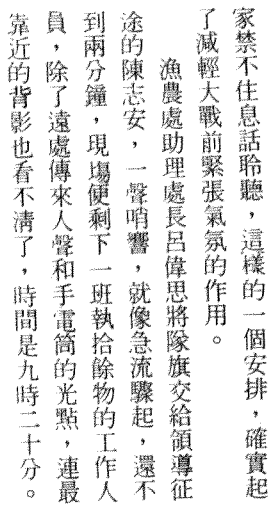 家禁不住息話聆聽，這樣的一個安排，確實起
了減輕大戰前緊張氣氛的作用。
漁農處助理處長呂偉思將隊旗交給領導征
途的陳志安，一聲哨響，就像急流驟起，還不
到兩分鐘，現場便剩下一班執拾餘物的工作人
員，除了遠處傳來人聲和手電筒的光點，連最
靠近的背影也看不清了，時間是九時二十分。